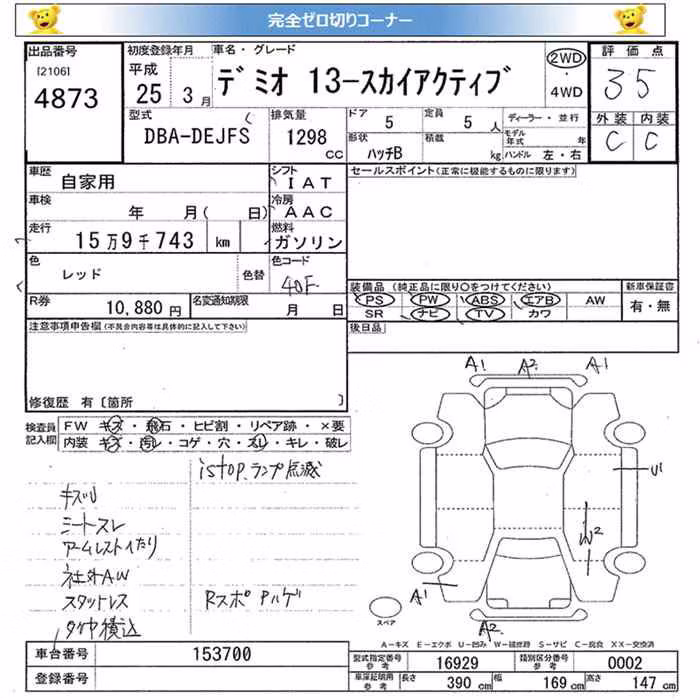 完全ゼロ切りコーナー
出品番号 初度登録年月 車名・グレード 評価点
[2106] 平成 デミオ 13-スカイアクティブ 2WD 35
4873 25 3月 ・4WD
型式 排気量 ドア 5 定員 5人 ディーラー・並行 外装 内装
DBA-DEJFS 1298CC 形状 ハッチB 積載 kg モデル年式 年 C C
ハンドル 左・右
車歴 自家用 シフト IAT セールスポイント(正常に機能するものに限ります)
車検 年 月( 日) 冷房 AAC
走行 15万9千743 km 燃料 ガソリン
色 レッド 色替 色コード 40F
装備品(純正品に限り○をつけてください) 新車保証書
PS PW ABS エアB AW 有・無
SR ナビ TV カワ
R券 10,880円 名変通知期限 月 日
後日品
注意事項申告欄(不具合内容等は具体的に記入して下さい)
修復歴 有〔箇所 〕
検査員記入欄 FW キズ・飛石・ヒビ割・リペア跡・×要
内装 キズ・汚レ・コゲ・穴・スレ・キレ・破レ
istop.ランプ点滅
キズU
シートスレ
アームレストイたり
社外AW
スタットレス
タイヤ積込
Rスポ Pハゲ
A1 A2 A1
U1
W2
A1
A2
スペア
A-キズ E-エクボ U-凹み W-補修跡 S-サビ C-腐食 XX-交換済
車台番号 153700
登録番号
型式指定番号参考 16929 類別区分番号参考 0002
車庫証明用参考 長さ 390cm 幅 169cm 高さ 147cm